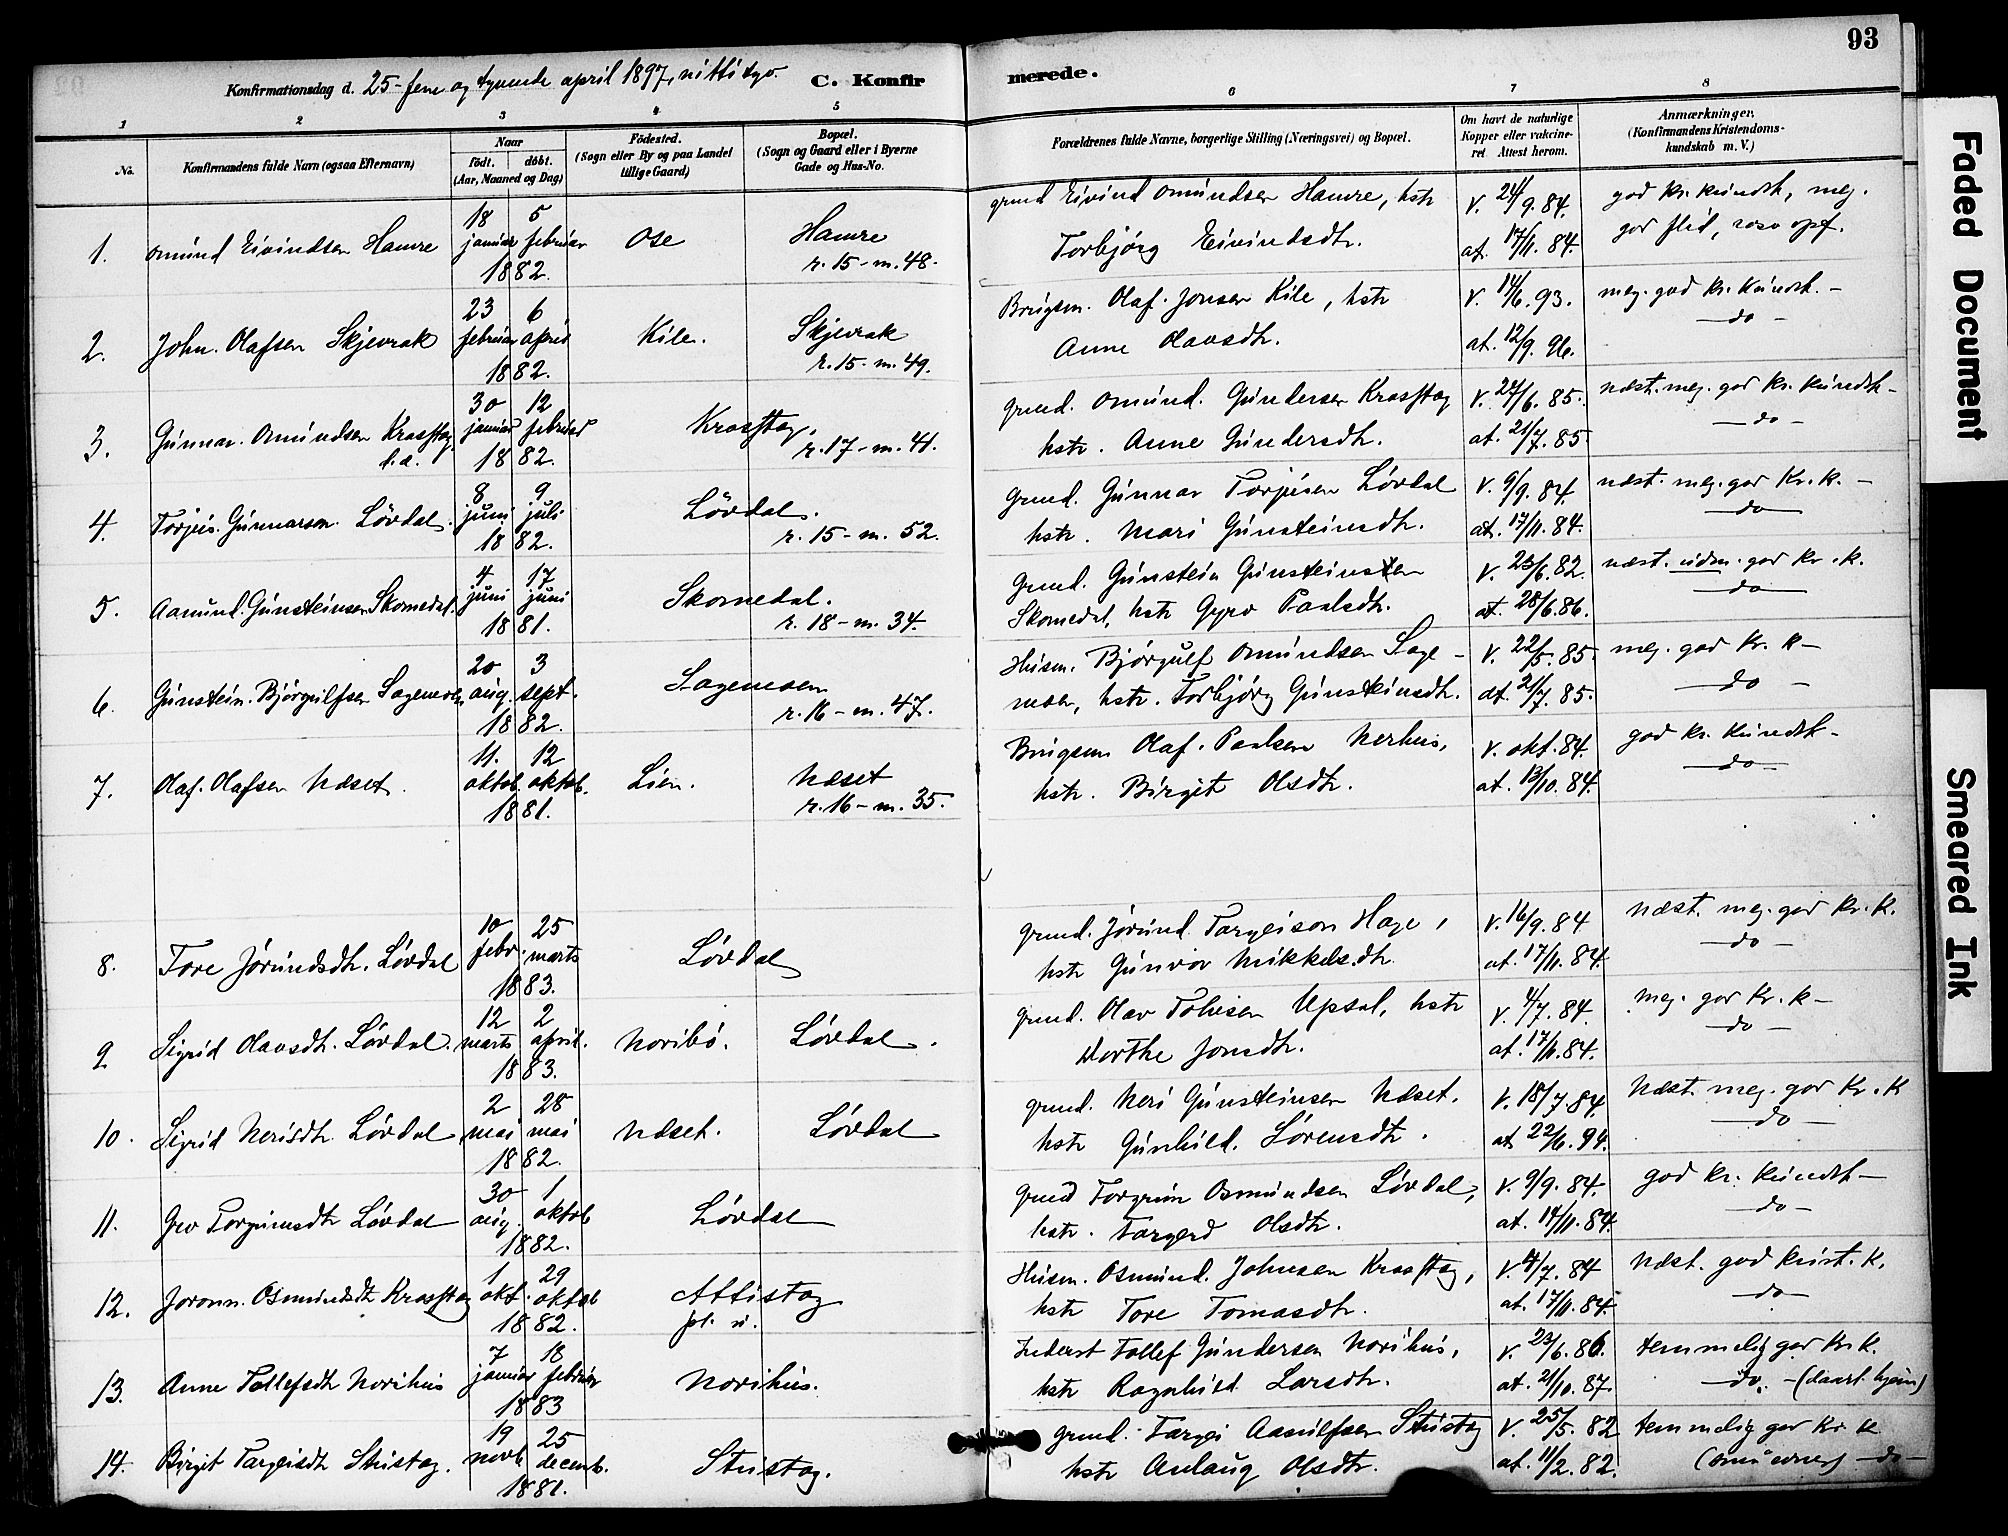 93
Konfirmationsdag d. 25- fem og tyvende april 1897, nittisyv.
C. Konfir
merede.
1 2 3 4 5 6 7 8
No.
Konfirmandens fulde Navn (ogsaa Efternavn)
Naar
født. døbt.
(Aar, Maaned og Dag)
Fødested.
(Sogn eller By og paa Landet
tillige Gaard)
Bopæl.
(Sogn og Gaard eller i Byerne
Gade og Hus-No.
Forældrenes fulde Navne, borgerlige Stilling (Næringsvei) og Bopæl.
Om havt de naturlige
Kopper eller vakcine-
ret. Attest herom.
Anmærkninger.
(Konfirmandens Kristendoms-
kundskab m. V.)
1. Omund Eivindsen Hamre
18 januar 5 februar
1882.
Ose
Hamre
r. 15 - m. 48.
grund Eivind Omundsen Hamre, hstr
Torbjørg Eivindsdtr.
v. 24/9. 84.
at. 17/11. 84.
god kr. kundsk, meg.
god flid, rosv opf.
2. John. Olafsen Skjevrak
23 februar 6 april
1882.
Kile.
Skjevrak
r. 15 - m. 49.
Brugsm. Olaf. Jonsen Kile, hstr
Anne Olavsdtr.
v. 14/6. 93.
at. 12/9. 96.
meg. god kr. kundsk. -
- do -
3. Gunnar. Omundsen Krosstag
30 januar 12 februar
1882.
Krosstag.
r. 17 - m. 41.
grund. Omund. Gundersen Krosstag
hstr. Anne Gundersdtr.
v. 24/6. 85.
at. 21/7. 85.
næst. meg. god kr. kundsk -
- do -
4. Torjeis. Gunnarson. Løvdal.
8 juni 9 juli
1882.
Løvdal.
r. 15 - m. 52.
Grund. Gunnar Torjusen Løvdal
hstr. Mari Gunsteinsdtr.
v. 9/9. 84.
at. 17/11. 84.
næst. meg. god Kr. k. -
- do -
5. Aamund. Gunsteinsen Skomedal.
4 juni 17 juni
1881.
Skomedal.
r. 18 - m. 34.
Grund. Gunstein Gunsteinsen
Skomedal, hstr Gyro Paalsdtr.
v. 23/6. 82.
at. 28/6. 86.
næst. udm. god kr. k.
- do -
6. Gunstein. Bjørgulfsen Sagemoen
20 aug. 3 sept.
1882.
Sagemoen
r. 16 - m. 47.
Husm. Bjørgulf Omundsen Sage-
moen, hstr. Torbjørg Gunsteinsdtr.
v. 22/5. 85.
at. 21/7. 85.
meg. god kr. k -
- do -
7. Olaf. Olafsen Næset.
11. oktob. 12 oktob.
1881.
Lien.
Næset
r. 16 - m. 35.
Brugsm Olaf. Paalsen Nerhus,
hstr. Birgit Olsdtr.
v. okt. 84.
at. 13/10. 84.
god kr. kundsk -
- do -
8. Tore Jørundsdtr. Løvdal
10 febr. 25 marts
1883.
Løvdal
grund. Jørund. Targeison Hage,
hstr Gunvor Mikkelsdtr.
v. 16/9. 84
at. 17/11. 84.
Næst. meg. god kr. k.
- do -
9 Sigrid Olavsdtr. Løvdal.
12 marts 2 april.
1883.
Noribø.
Løvdal.
grund. Olav Tolvsen Upsal, hstr
Dorthe Jonsdtr.
v. 4/7. 84.
at. 17/11. 84.
meg. god kr. k -
- do -
10. Sigrid Nerisdtr. Løvdal
2 mai 28 mai
1882.
Næset.
Løvdal
grund. Neri Gunsteinsen Næset.
hstr Gunhild. Sørensdtr.
v. 18/7. 84.
at 22/6. 94.
Næst. meg. god kr. k
- do -
11. Gro Torgrimsdtr Løvdal
30 aug. 1 oktob
1882.
Løvdal
Grund Torgrim Osmundsen Løvdal,
hstr. Targerd Olsdtr.
v. 9/9. 84.
at. 17/11. 84.
god kr. kundsk -
- do -
12. Joronn. Osmundsdtr Krosstag
1 okt. 29 oktob
1882.
Attistog
Husm. Osmund. Johnsen Krosstag,
hstr Tore Tomasdtr.
v. 4/7. 84
at. 17/11. 84.
Næst. god krist. k.
- do -
13. Anne Tollefsdtr Norihus
7 januar 18 februar
1883
Norihus.
Inderst Tollef Gundersen Norihus,
hstr Ragnhild Larsdtr.
v. 23/6. 86.
at. 21/10. 87.
temmelig god kr k.
- do. -
14. Birgit Targeisdtr Stustog.
19 novb. 25 decemb.
1881.
Stustog.
grund. Targei Aasulfsen Stustog
hstr Anlaug Olsdtr.
v. 25/5. 82
at. 11/2. 82.
temmelig god kr. k
(små evner) - do -
Faded Document
Smeared Ink